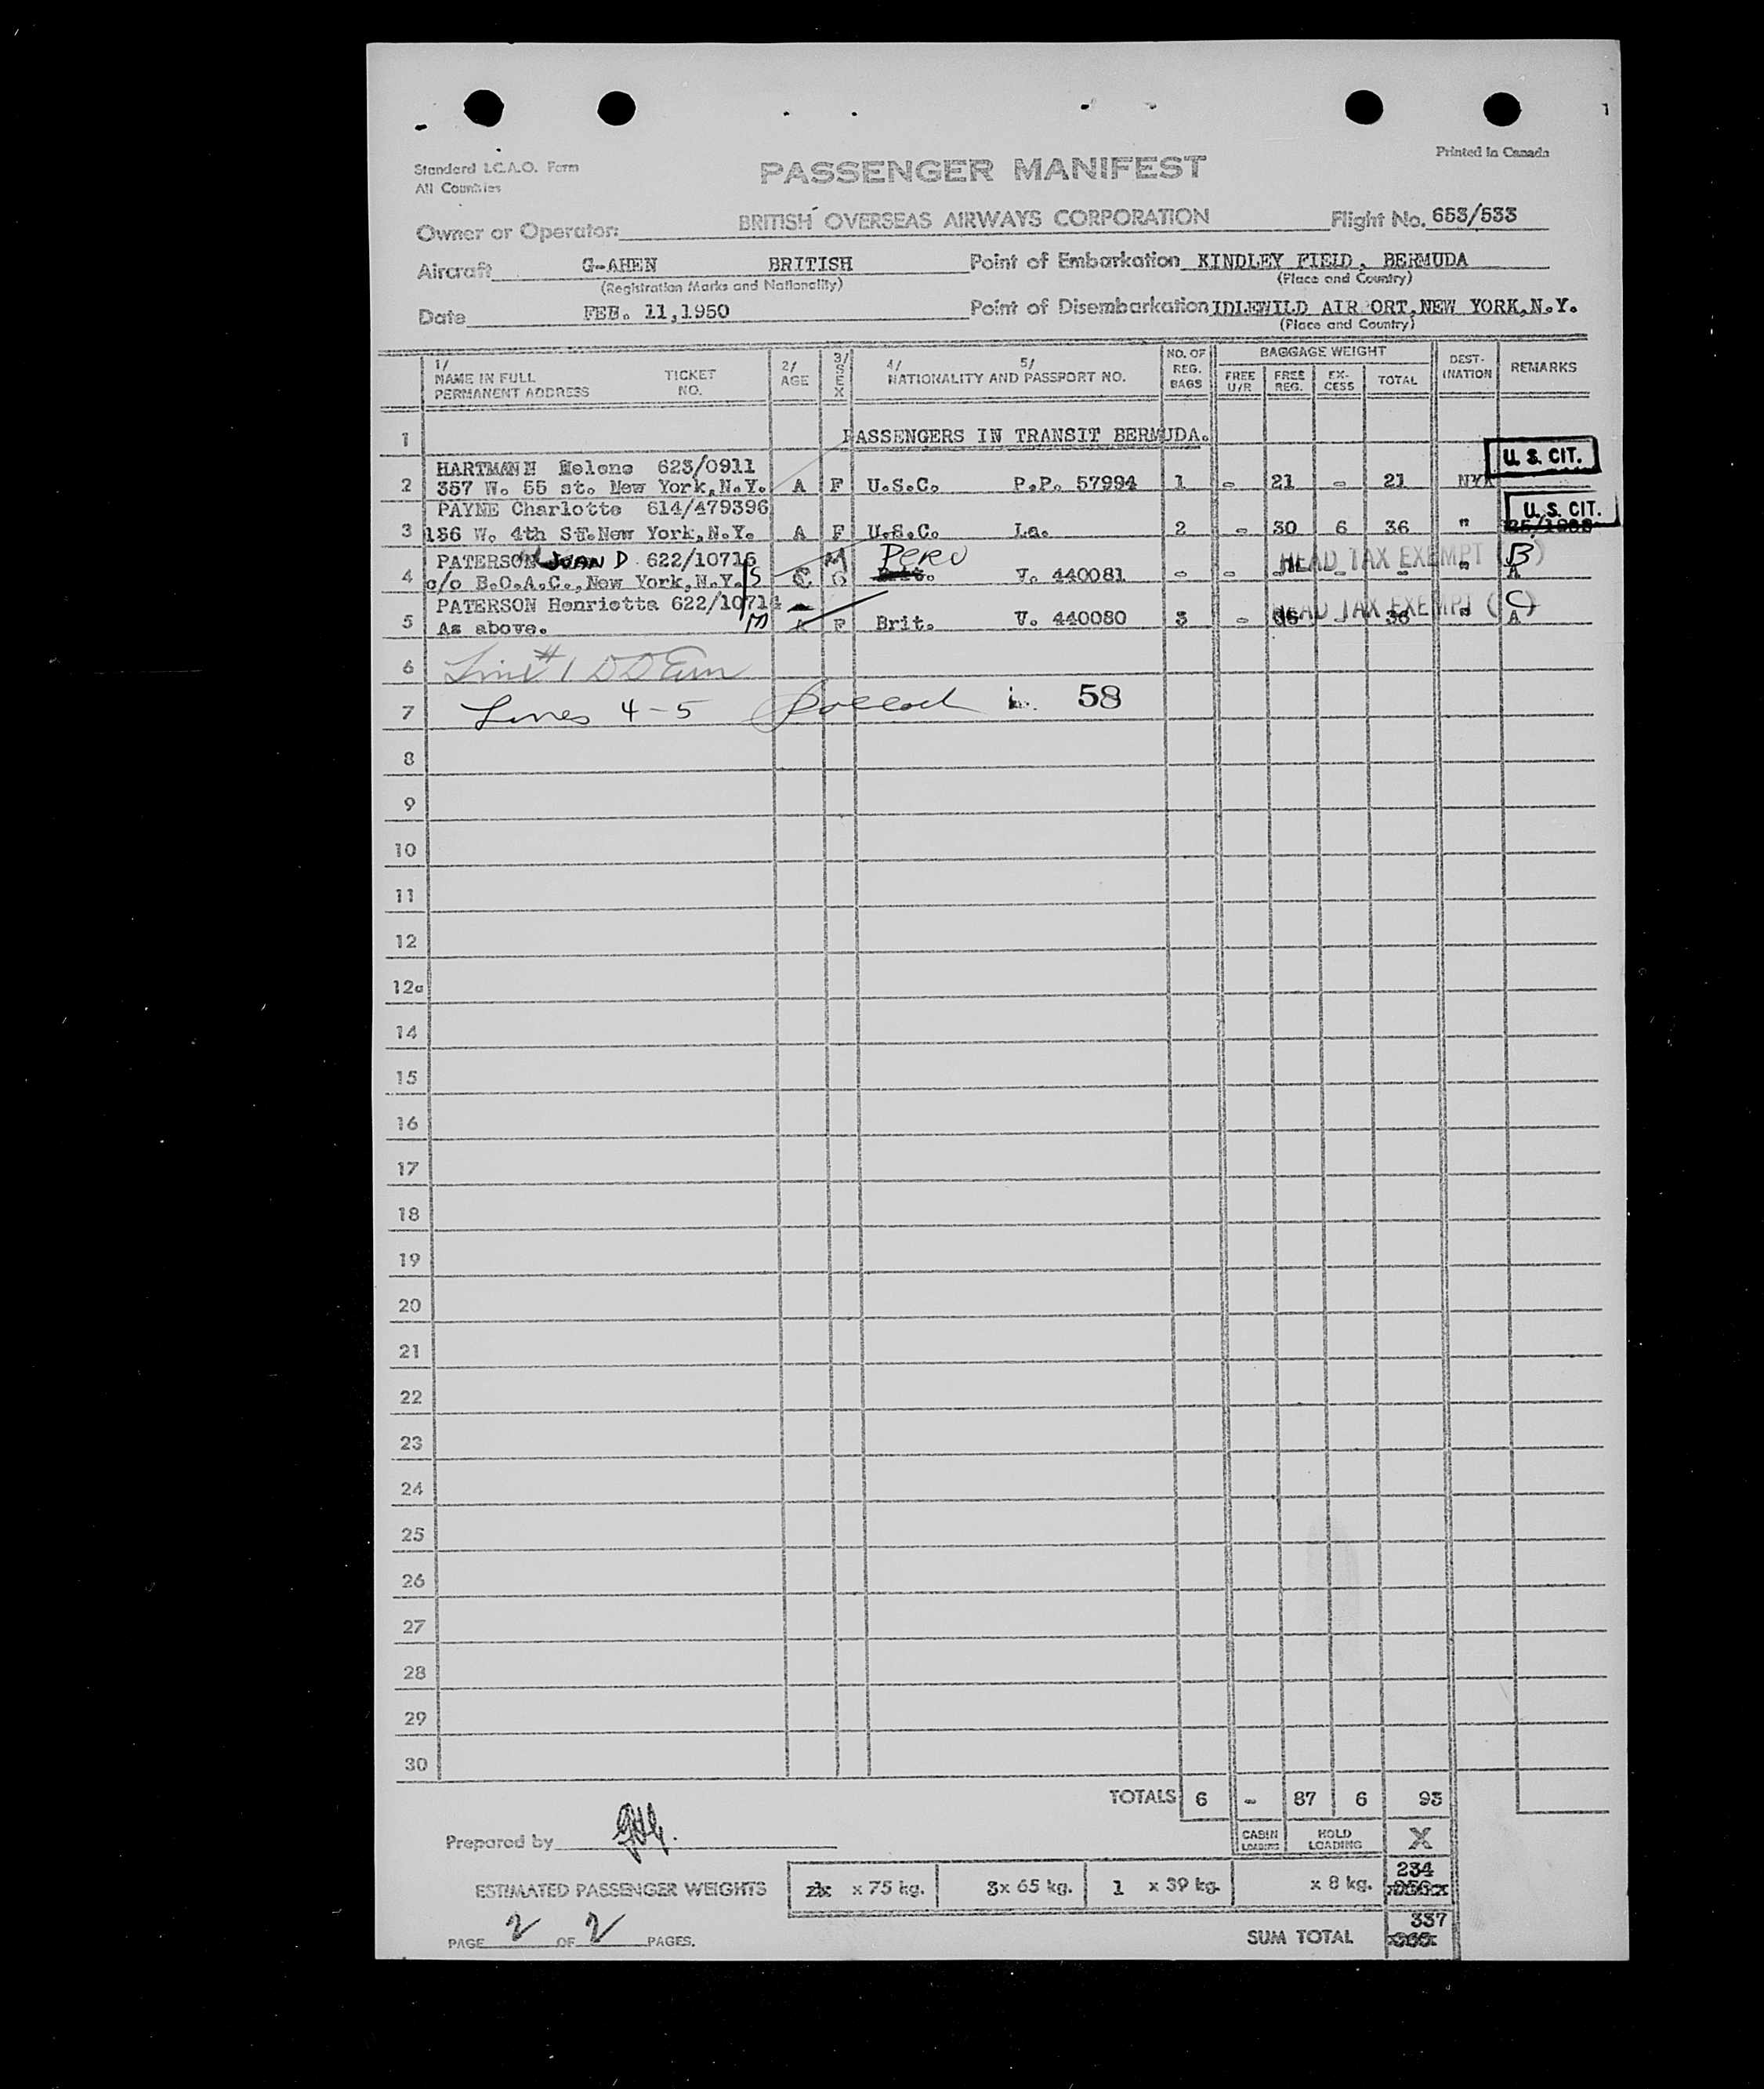 Standard I.C.A.O. Form
All Countries
PASSENGER MANIFEST
Printed in Canada
Owner or Operator: BRITISH OVERSEAS AIRWAYS CORPORATION Flight No. 653/533
Aircraft G-AHEN BRITISH Point of Embarkation KINDLEY FIELD, BERMUDA
(Registration Marks and Nationality) (Place and Country)
Date FEB. 11,1950 Point of Disembarkation IDLEWILD AIR ORT,NEW YORK,N.Y.
(Place and Country)
1/ NAME IN FULL PERMANENT ADDRESS TICKET NO. 2/ AGE 3/ SEX 4/ 5/ NATIONALITY AND PASSPORT NO. NO. OF REG. BAGS BAGGAGE WEIGHT FREE U/R FREE REG. EX-CESS TOTAL DEST-INATION REMARKS
1 PASSENGERS IN TRANSIT BERMUDA.
HARTMANN Helene 623/0911 U. S. CIT.
2 357 W. 55 st. New York,N.Y. A F U.S.C. P.P. 57994 1 - 21 - 21 NYK
PAYNE Charlotte 614/479396 U. S. CIT.
3 136 W. 4th ST.New York,N.Y. A F U.S.C. La. 2 - 30 6 36 "
PATERSON JUAN D 622/10715 M PERU HEAD TAX EXEMPT ( B )
4 c/o B.O.A.C.,New York,N.Y. S C V. 440081 - - - - - " A
PATERSON Henrietta 622/10714 HEAD TAX EXEMPT ( C )
5 As above. M A F Brit. V. 440080 3 - 36 - 36 " A
6 Line # 1
7 Lines 4-5 58
8
9
10
11
12
12a
14
15
16
17
18
19
20
21
22
23
24
25
26
27
28
29
30
TOTALS 6 - 87 6 93
Prepared by
CABIN LOADING HOLD LOADING X
ESTIMATED PASSENGER WEIGHTS x 75 kg. 3x 65 kg. 1 x 39 kg. x 8 kg. 234
337
PAGE 2 OF 2 PAGES. SUM TOTAL